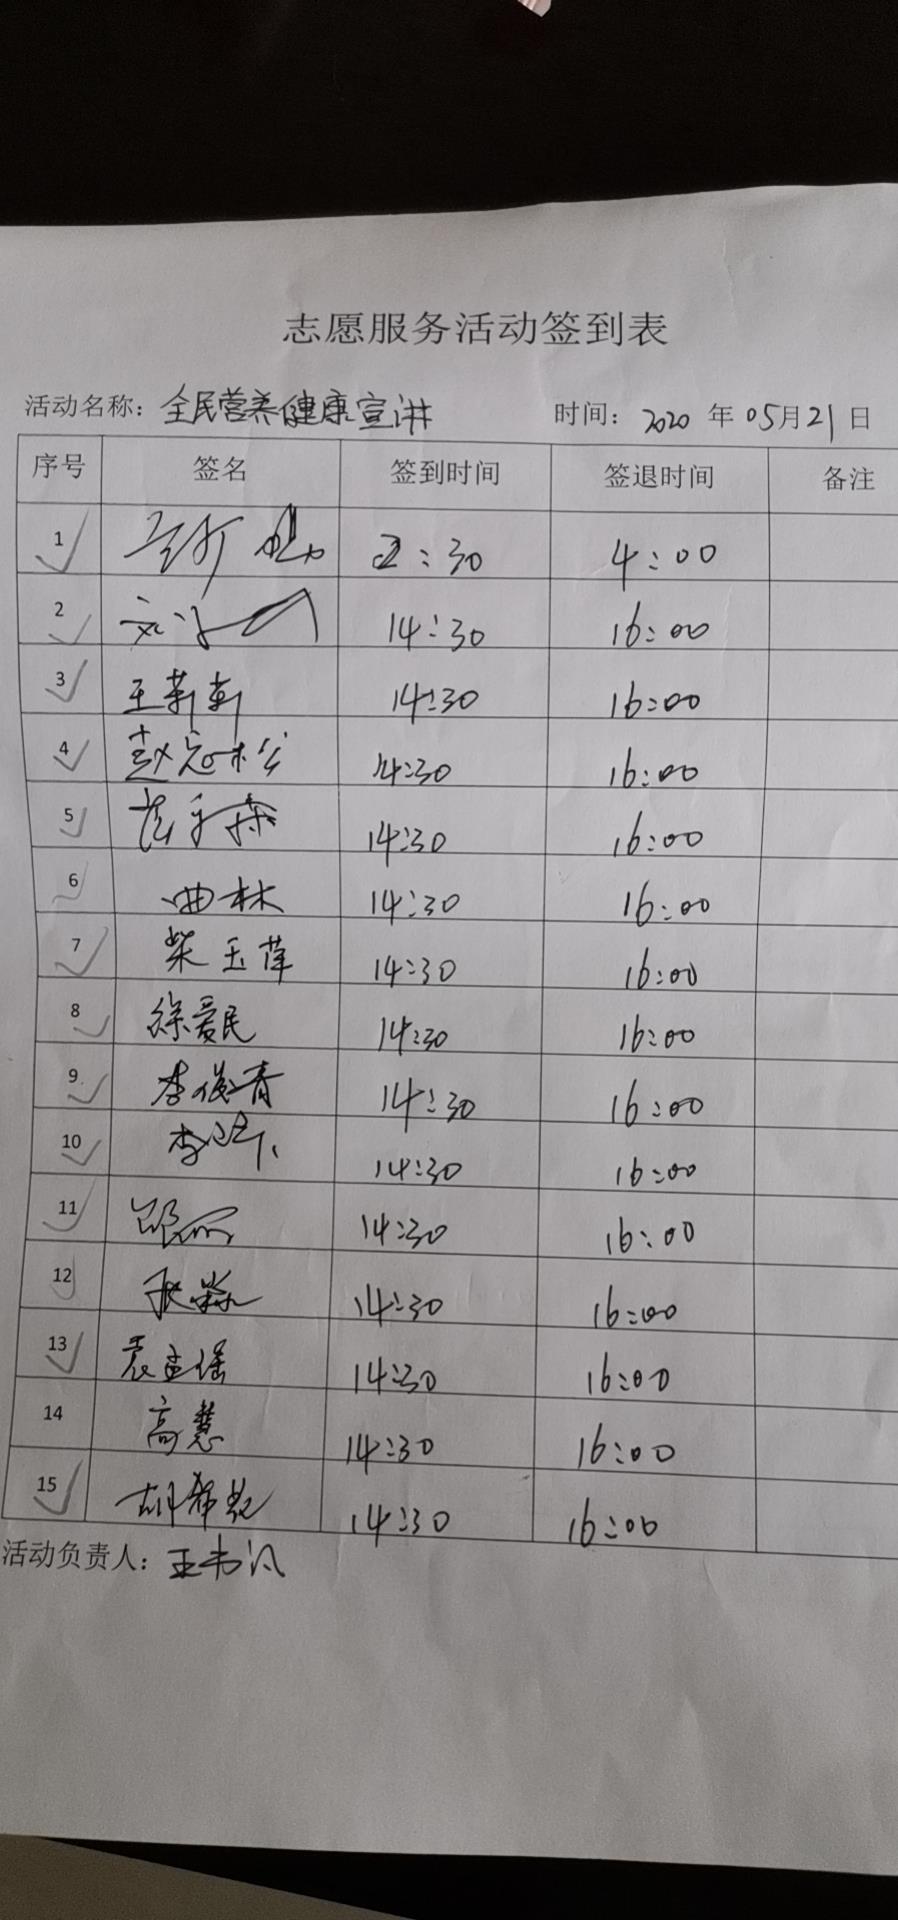 志愿服务活动签到表
活动名称：全民营养健康宣讲 时间：2020 年 05月21日
序号 签名 签到时间 签退时间 备注
1 2:30 4:00
2 14:30 16:00
3 王莉莉 14:30 16:00
4 14:30 16:00
5 14:30 16:00
6 曲林 14:30 16:00
7 柴玉萍 14:30 16:00
8 徐爱民 14:30 16:00
9 李俊青 14:30 16:00
10 李 14:30 16:00
11 14:30 16:00
12 14:30 16:00
13 袁孟瑶 14:30 16:00
14 高慧 14:30 16:00
15 14:30 16:00
活动负责人：